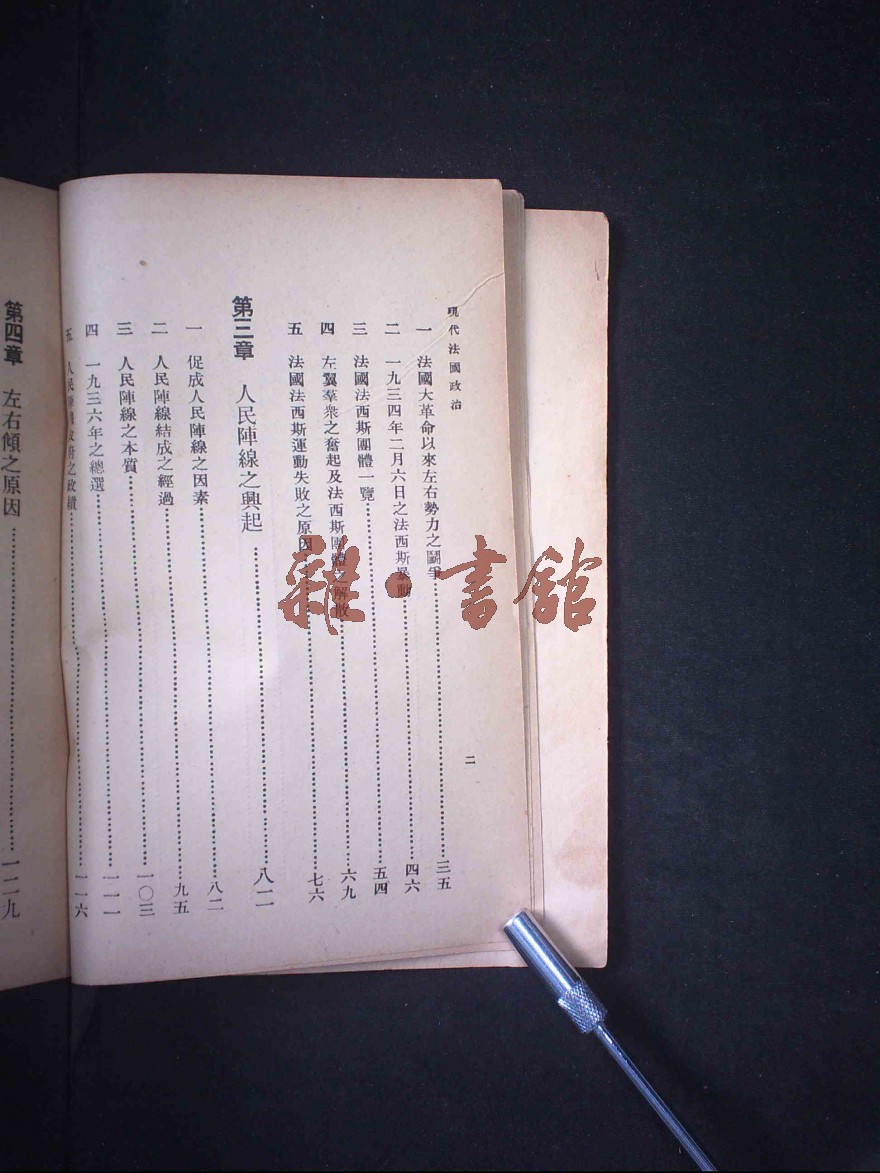 現代法國政治
二
一 法國大革命以來左右勢力之鬭爭……三五
二 一九三四年二月六日之法西斯暴動……四六
三 法國法西斯團體一覽……五四
四 左翼羣衆之奮起及法西斯團體之解散……六九
五 法國法西斯運動失敗之原因……七六
第三章 人民陣線之興起……八一
一 促成人民陣線之因素……八二
二 人民陣線結成之經過……九五
三 人民陣線之本質……一〇三
四 一九三六年之總選……一一一
五 人民陣線政府之政績……一一六
第四章 左右傾之原因……一二九
雜·書館